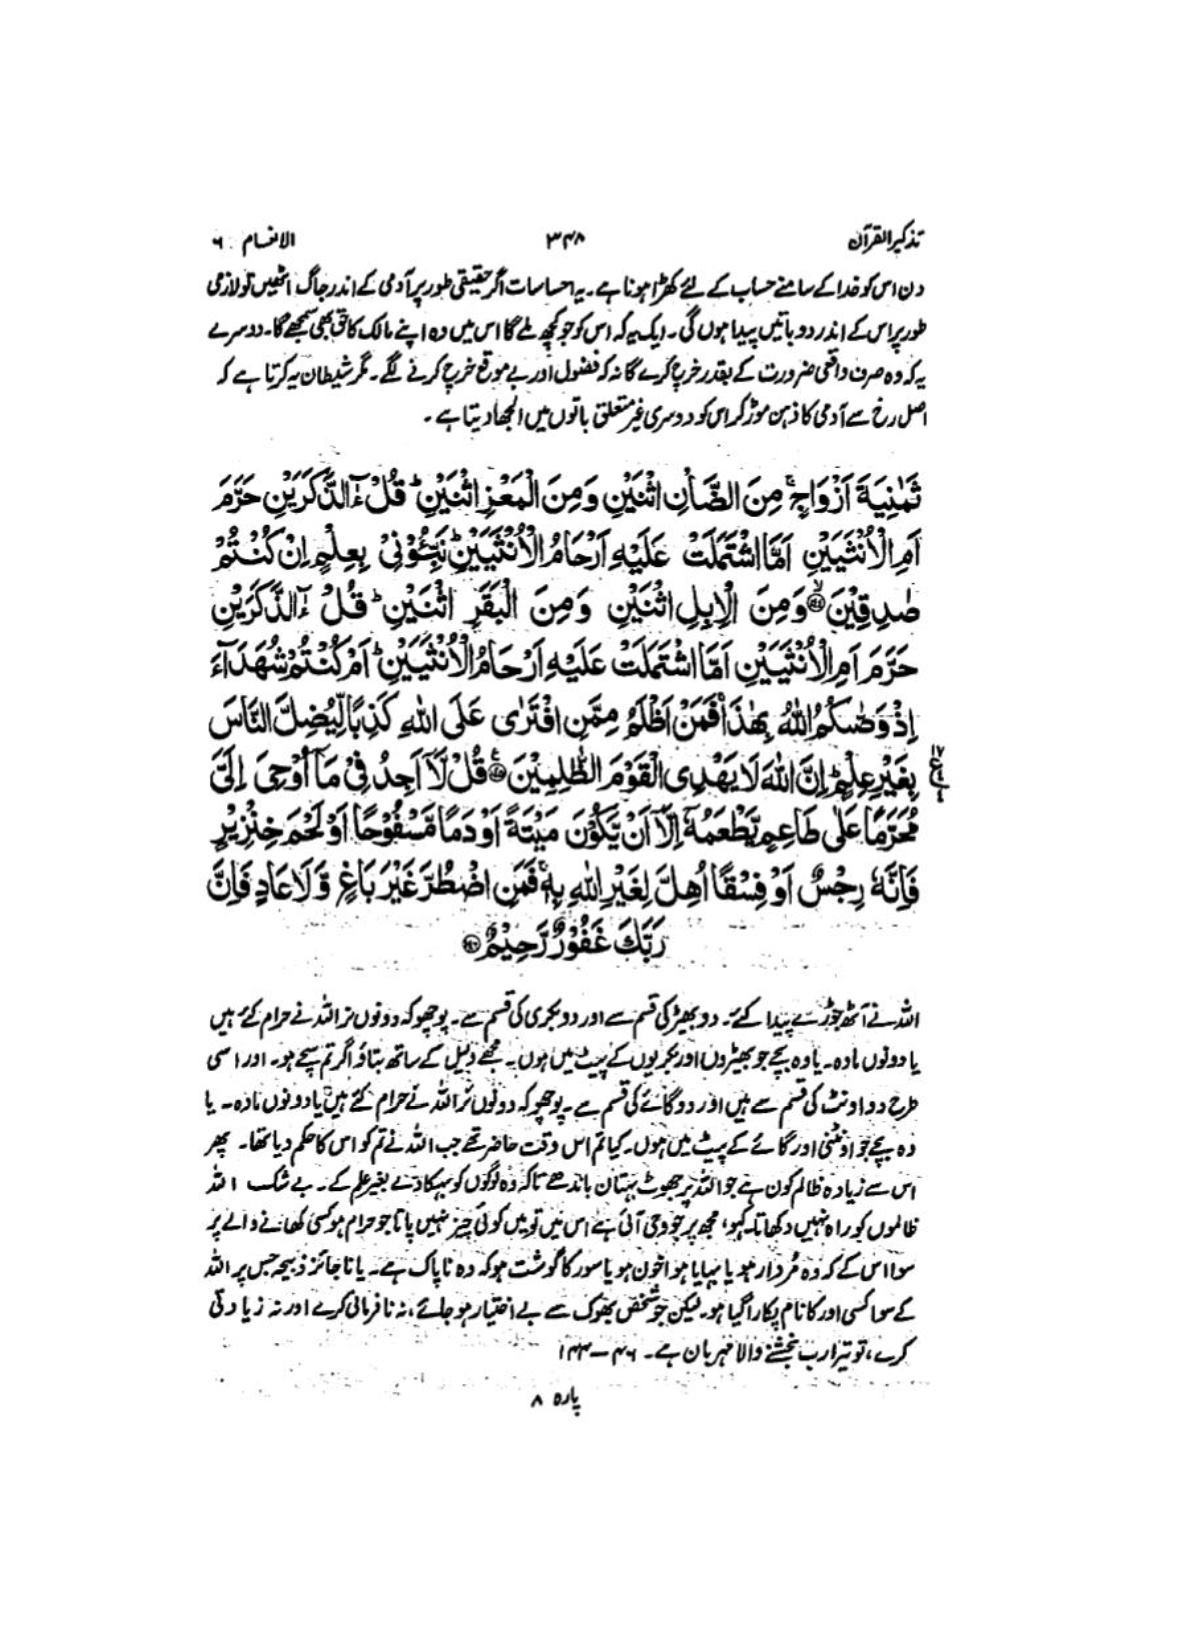 تذکیر القرآن ۳۴۸ الانعام ۶
دن اس کو خدا کے سامنے حساب کے لئے کھڑا ہونا ہے۔ یہ احساسات اگر حقیقی طور پر آدمی کے اندر جاگ اٹھیں تو لازمی
طور پر اس کے اندر دو باتیں پیدا ہوں گی۔ ایک یہ کہ اس کو جو کچھ ملے گا اس میں وہ اپنے مالک کا حق بھی سمجھے گا۔ دوسرے
یہ کہ وہ صرف واقعی ضرورت کے بقدر خرچ کرے گا نہ کہ فضول اور بے موقع خرچ کرنے لگے۔ مگر شیطان یہ کرتا ہے کہ
اصل رخ سے آدمی کا ذہن موڑ کر اس کو دوسری غیر متعلق باتوں میں الجھا دیتا ہے۔
ثَمٰنِيَةَ اَزْوَاجٍ ۚ مِنَ الضَّاْنِ اثْنَيْنِ وَمِنَ الْمَعْزِ اثْنَيْنِ ؕ قُلْ ءٰٓالذَّكَرَيْنِ حَرَّمَ
اَمِ الْاُنْثَيَيْنِ اَمَّا اشْتَمَلَتْ عَلَيْهِ اَرْحَامُ الْاُنْثَيَيْنِ ؕ نَبِّـُٔوْنِيْ بِعِلْمٍ اِنْ كُنْتُمْ
صٰدِقِيْنَ ۙ﴿۱۴۳﴾ وَمِنَ الْاِبِلِ اثْنَيْنِ وَمِنَ الْبَقَرِ اثْنَيْنِ ؕ قُلْ ءٰٓالذَّكَرَيْنِ
حَرَّمَ اَمِ الْاُنْثَيَيْنِ اَمَّا اشْتَمَلَتْ عَلَيْهِ اَرْحَامُ الْاُنْثَيَيْنِ ؕ اَمْ كُنْتُمْ شُهَدَآءَ
اِذْ وَصّٰىكُمُ اللّٰهُ بِهٰذَا ۚ فَمَنْ اَظْلَمُ مِمَّنِ افْتَرٰى عَلَى اللّٰهِ كَذِبًا لِّيُضِلَّ النَّاسَ
بِغَيْرِ عِلْمٍ ؕ اِنَّ اللّٰهَ لَا يَهْدِى الْقَوْمَ الظّٰلِمِيْنَ ﴿۱۴۴﴾ قُلْ لَّآ اَجِدُ فِيْ مَآ اُوْحِيَ اِلَيَّ
مُحَرَّمًا عَلٰى طَاعِمٍ يَّطْعَمُهٗٓ اِلَّآ اَنْ يَّكُوْنَ مَيْتَةً اَوْ دَمًا مَّسْفُوْحًا اَوْ لَحْمَ خِنْزِيْرٍ
فَاِنَّهٗ رِجْسٌ اَوْ فِسْقًا اُهِلَّ لِغَيْرِ اللّٰهِ بِهٖ ۚ فَمَنِ اضْطُرَّ غَيْرَ بَاغٍ وَّلَا عَادٍ فَاِنَّ
رَبَّكَ غَفُوْرٌ رَّحِيْمٌ ﴿۱۴۵﴾
اللہ نے آٹھ جوڑے پیدا کئے۔ دو بھیڑ کی قسم سے اور دو بکری کی قسم سے۔ پوچھو کہ دونوں نر اللہ نے حرام کئے ہیں
یا دونوں مادہ۔ یا وہ بچے جو بھیڑوں اور بکریوں کے پیٹ میں ہوں۔ مجھے دلیل کے ساتھ بتاؤ اگر تم سچے ہو۔ اور اسی
طرح دو اونٹ کی قسم سے ہیں اور دو گائے کی قسم سے۔ پوچھو کہ دونوں نر اللہ نے حرام کئے ہیں یا دونوں مادہ۔ یا
وہ بچے جو اونٹنی اور گائے کے پیٹ میں ہوں۔ کیا تم اس وقت حاضر تھے جب اللہ نے تم کو اس کا حکم دیا تھا۔ پھر
اس سے زیادہ ظالم کون ہے جو اللہ پر جھوٹ بہتان باندھے تاکہ وہ لوگوں کو بہکا دے بغیر علم کے۔ بے شک اللہ
ظالموں کو راہ نہیں دکھاتا۔ کہو، مجھ پر جو وحی آئی ہے اس میں تو میں کوئی چیز نہیں پاتا جو حرام ہو کسی کھانے والے پر
سوا اس کے کہ وہ مُردار ہو یا بہایا ہوا خون ہو یا سور کا گوشت ہو کہ وہ ناپاک ہے۔ یا ناجائز ذبیحہ جس پر اللہ
کے سوا کسی اور کا نام پکارا گیا ہو۔ لیکن جو شخص بھوک سے بے اختیار ہو جائے، نہ نافرمانی کرے اور نہ زیادتی
کرے، تو تیرا رب بخشنے والا مہربان ہے۔ ۴۶ – ۱۴۳
پارہ ۸